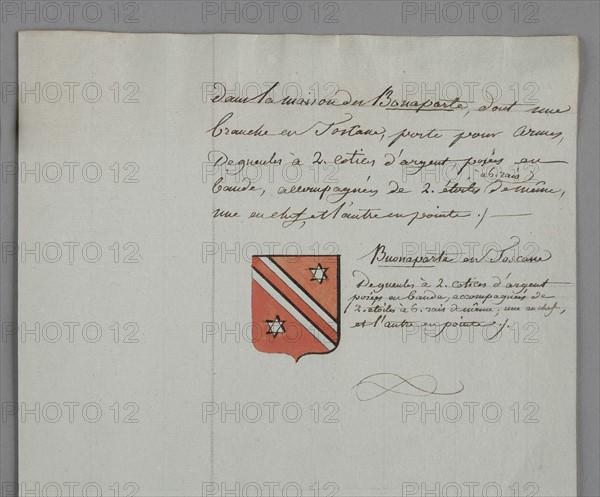 dans la maison des Bonaparte, dont une
branche en Toscane, porte pour armes,
De gueules à 2. cotices d'argent, posées en
à 6. rais
bande, accompagnés de 2. étoiles de même,
une en chef, et l'autre en pointe ./.
Buonaparte en Toscane
De gueules à 2. cotices d'argent
posées en bande, accompagnées de
2. étoiles à 6. rais de même, une en chef,
et l'autre en pointe ./.
PHOTO 12